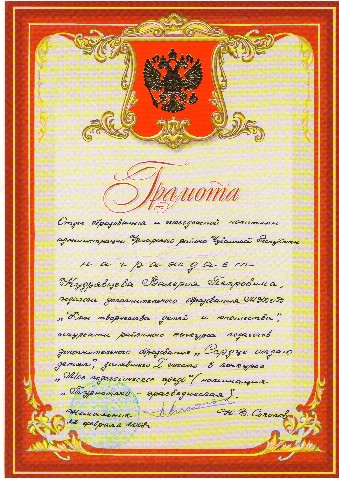 Грамота
Отдел образования и молодежной политики
администрации Урмарского района Чувашской Республики
награждает
Кудрявцева Валерия Петровича,
педагога дополнительного образования МОУДОД
"Дом творчества детей и юношества",
лауреата районного конкурса педагогов
дополнительного образования "Сердце отдаю
детям", занявшего I место в конкурсе
педагогического (номинация
"Туристско-краеведческая")
Начальник Н.В. Соколов
февраля